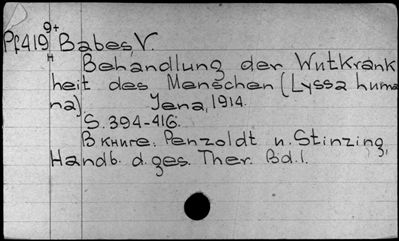 Pf419 9+ Babes, V.
н Behandlung der Wutkrank
heit des Menschen (Lyssa huma
na) Jena, 1914.
S. 394-416.
В книге. Penzoldt u. Stinzing,
Handb. d. ges. Ther. Bd. I.